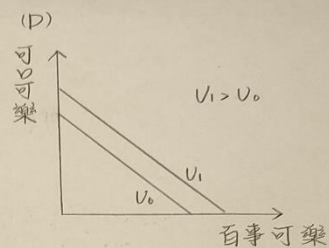 (D)
可口可樂
U₁ > U₀
U₁
U₀
百事可樂